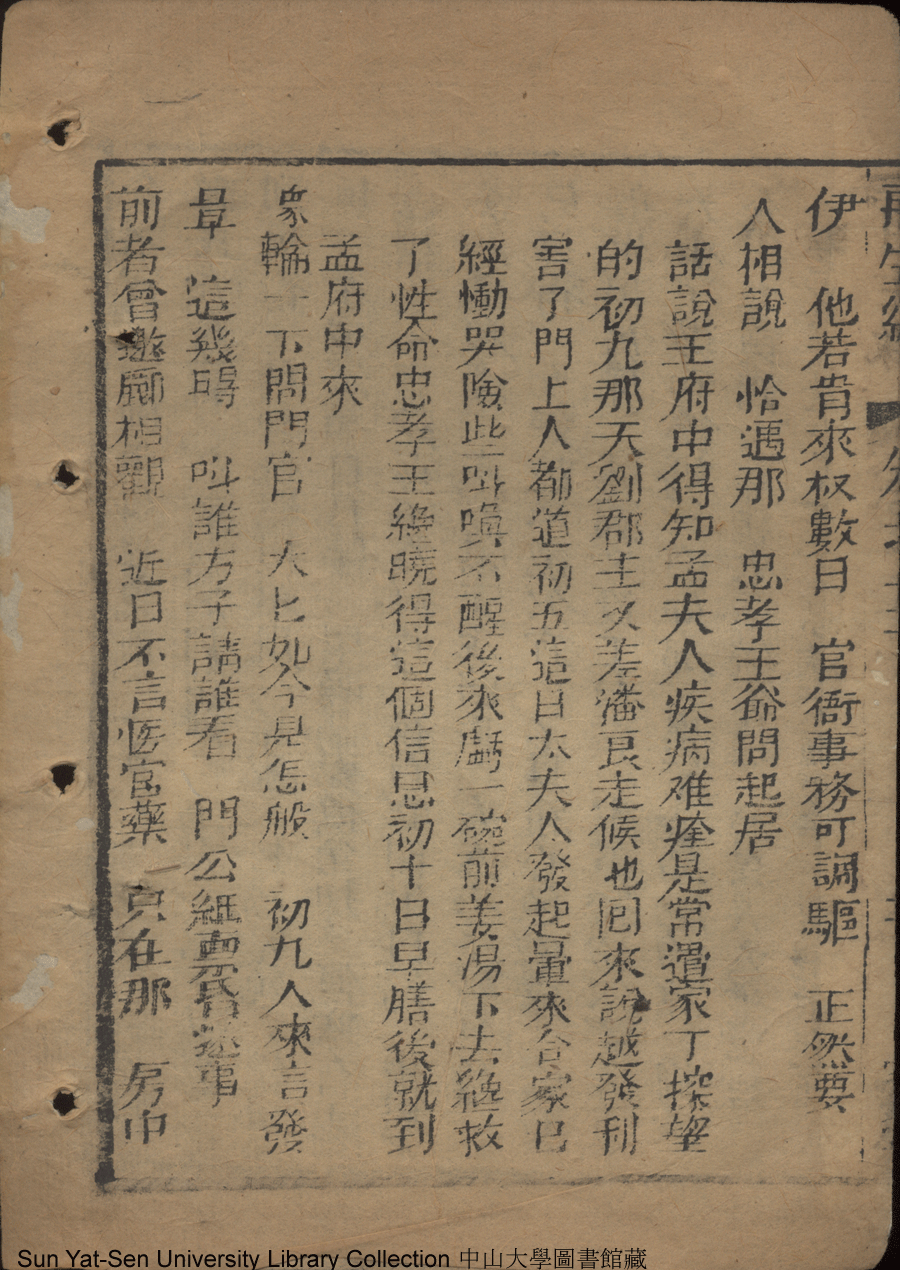 再生緣
伊 他若肯來权數日 官衙事務可調驅 正然要
人相說 恰遇那 忠孝王爺問起居
話說王府中得知孟夫人疾病难痊是常遣家丁探望
的初九那天劉郡主又差潘良走候也囘來說越發利
害了門上人都道初五這日太夫人發起暈來合家已
經慟哭險些叫喚不醒後來虧一碗煎姜湯下去絶救
了性命忠孝王纔曉得這個信息初十日早膳後就到
孟府中來
衆輪一下問門官 太匕如今是怎般 初九人來言發
暈 這幾時 叫誰方子請誰看 門公經
前者曾邀酈相觀 近日不言悞官藥 只在那 房中
Sun Yat-Sen University Library Collection 中山大學圖書館藏